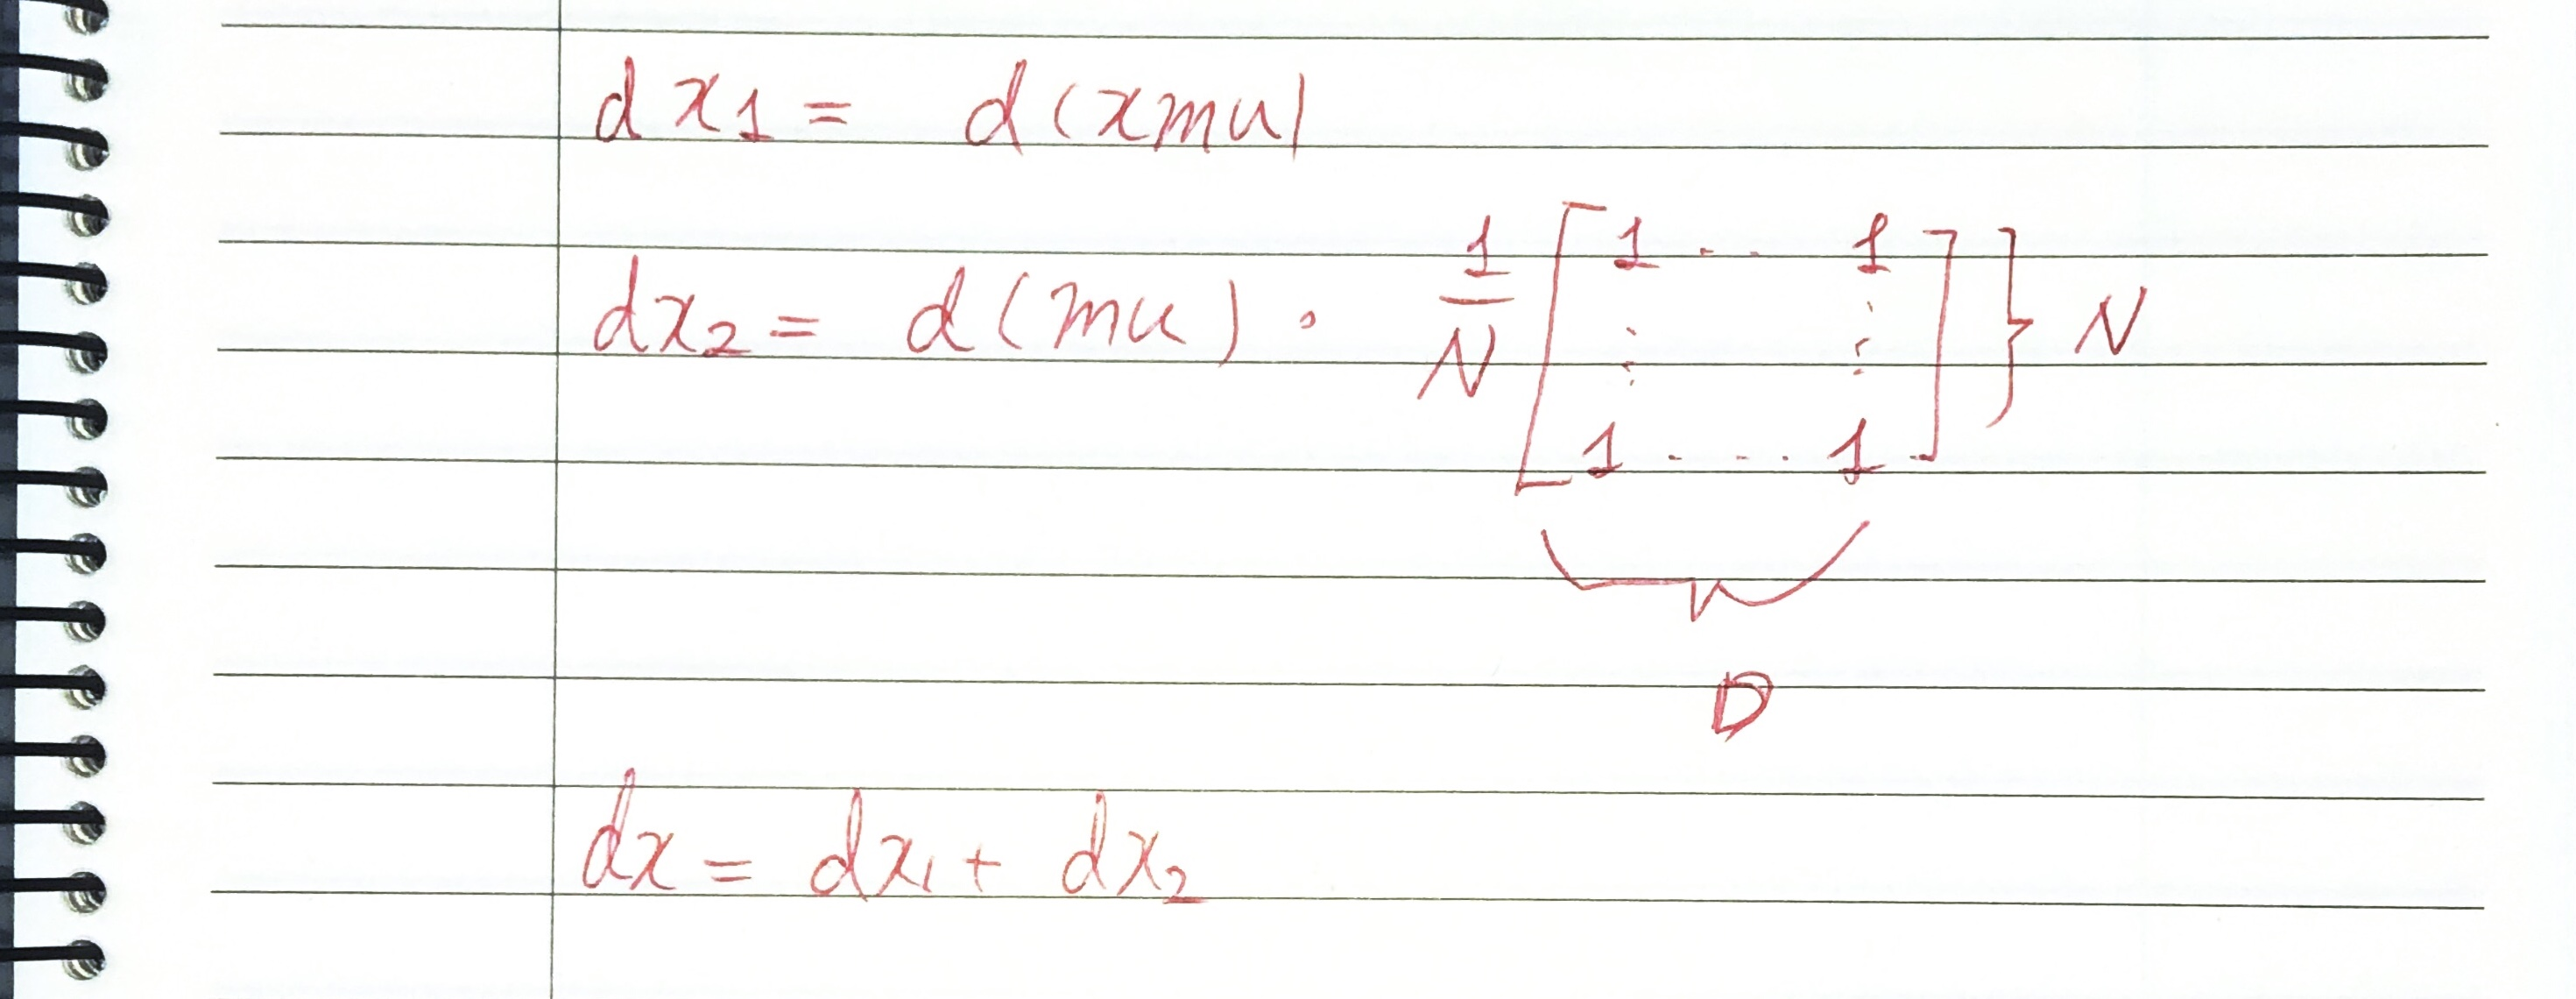 dx1 = d(xmu)
dx2 = d(mu) · 1/N [1 ... 1 ⋮ ⋮ 1 .... 1] } N
D
dx = dx1 + dx2